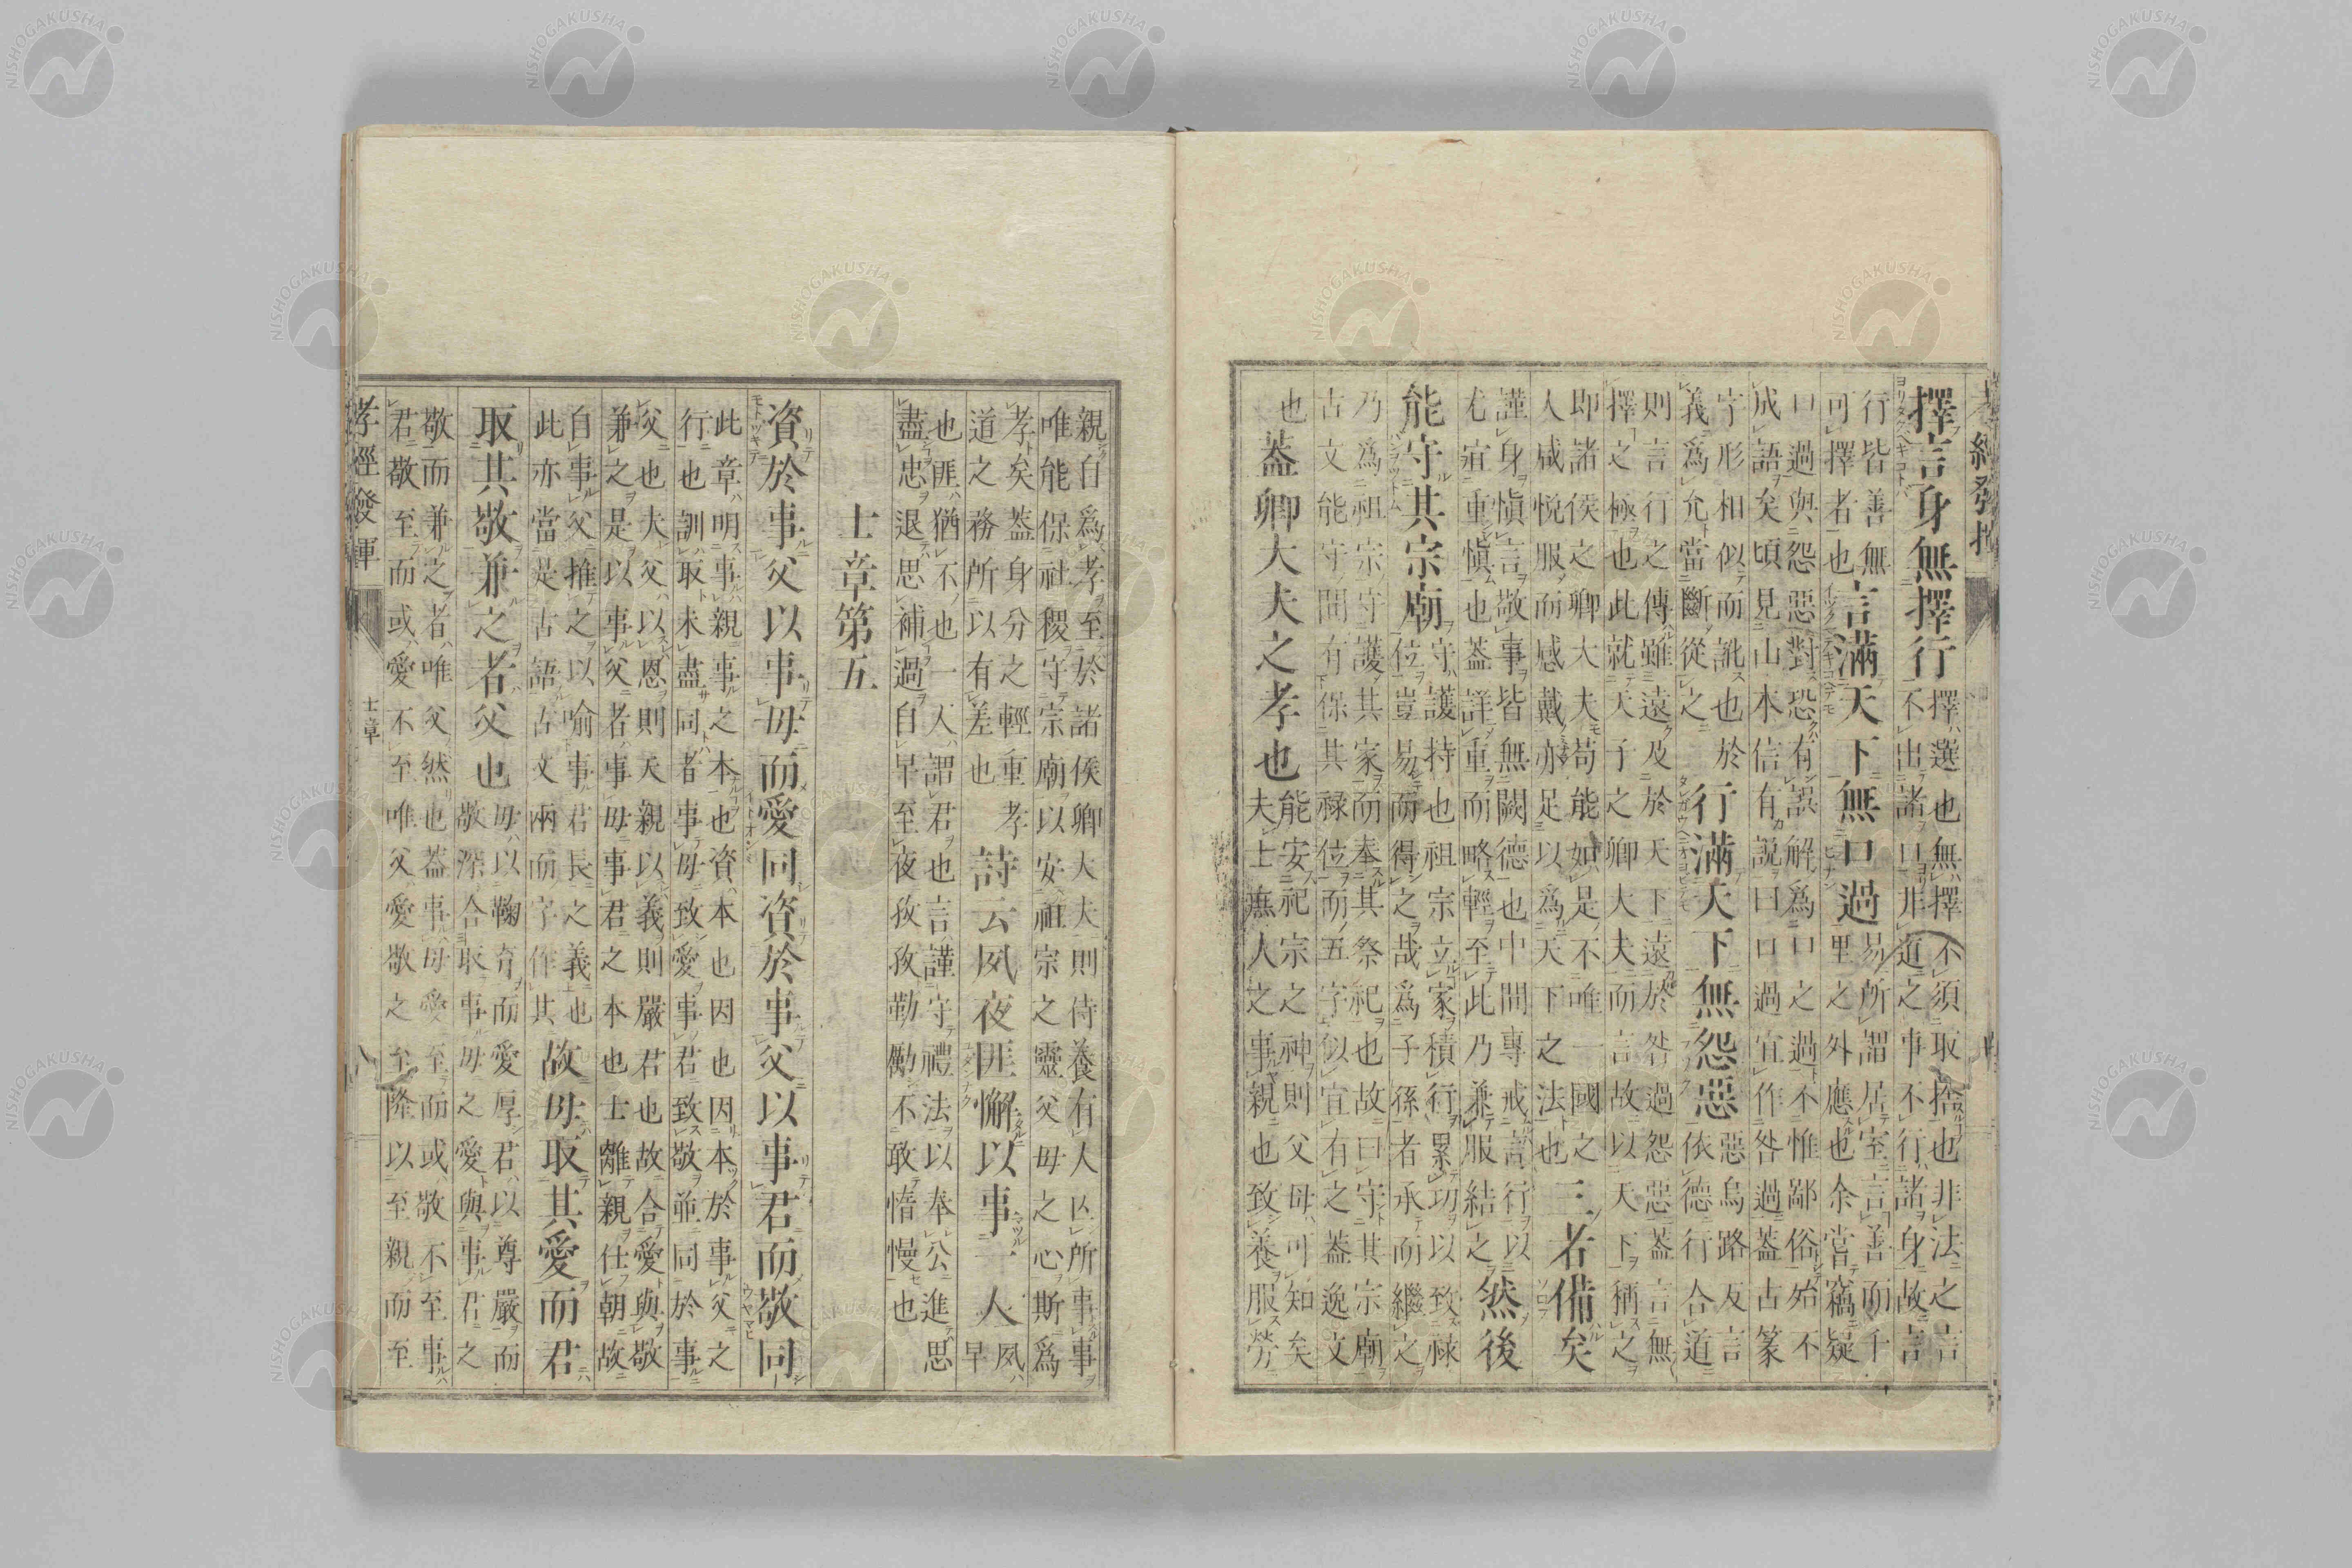 孝經發揮
擇言身無擇行
擇選也無擇不須取捨也非法之言
不出諸口非道之事不行諸身故言
行皆善無
可擇者也
言滿天下無口過
易所謂居室言善而千
里之外應也余嘗竊疑
口過與怨惡對恐有誤解爲口之過不惟鄙俗殆不
成語矣頃見山本信有説曰口過宜作咎過蓋古篆
字形相似而訛也於
義爲允當斷從之
行滿天下無怨惡
惡烏路反言
依德行合道
則言行之傳雖遠及於天下遠於咎過怨惡蓋言無
擇之極也此就天子之卿大夫而言故以天下稱之
即諸侯之卿大夫苟能如是不唯一國之
人咸悦服而感戴亦足以爲天下之法也
三者備矣
謹身愼言敬事皆無闕德也中間專戒言行以
尤宜重愼也蓋詳重而略輕至此乃兼服結之
然後
能守其宗廟
守護持也祖宗立家積行累功以致祿
位豈易而得之哉爲子孫者承而繼之
乃爲祖宗守護其家而奉其祭祀也故曰守其宗廟
古文能守間有保其祿位而五字似宜有之蓋逸文
也
蓋卿大夫之孝也
能安祀宗之神則父母可知矣
夫士庶人之事親也致養服勞
親自爲孝至於諸侯卿大夫則侍養有人所事事
唯能保社稷守宗廟以安祖宗之靈父母之心斯爲
孝矣蓋身分之輕重孝
道之務所以有差也
詩云夙夜匪懈以事一人
夙
早
也匪猶不也一人謂君也言謹守禮法以奉公進思
盡忠退思補過自早至夜孜孜勤勵不敢惰慢也
士章第五
資於事父以事母而愛同資於事父以事君而敬同
此章明事親事之本也資本也因也因本於事父之
行也訓取未盡同者事母致愛事君致敬並同於事
父也夫父以恩則天親以義則嚴君也故合愛與敬
兼之是以事父者事母事君之本也士離親仕朝故
自事父推之以喻事君長之義也
此亦當是古語古文兩而字作其
故母取其愛而君
取其敬兼之者父也
母以鞠育而愛厚君以尊嚴而
敬深合取事母之愛與事君之
敬而兼之者唯父然也蓋事母愛至而或敬不至事
君敬至而或愛不至唯父愛敬之至隆以至親而至
孝經發揮
士章
八
NISHOGAKUSHA